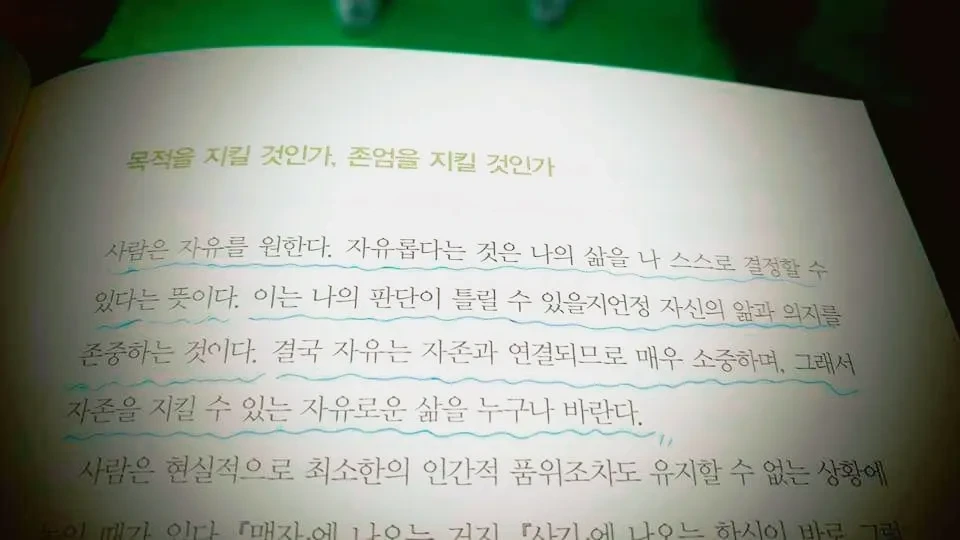 목적을 지킬 것인가, 존엄을 지킬 것인가
사람은 자유를 원한다. 자유롭다는 것은 나의 삶을 나 스스로 결정할 수
있다는 뜻이다. 이는 나의 판단이 틀릴 수 있을지언정 자신의 앎과 의지를
존중하는 것이다. 결국 자유는 자존과 연결되므로 매우 소중하며, 그래서
자존을 지킬 수 있는 자유로운 삶을 누구나 바란다.
사람은 현실적으로 최소한의 인간적 품위조차도 유지할 수 없는 상황에
때가 있다. 『맹자』에 나오는 거지, 『사기』에 나오는 한신이 바로 그런